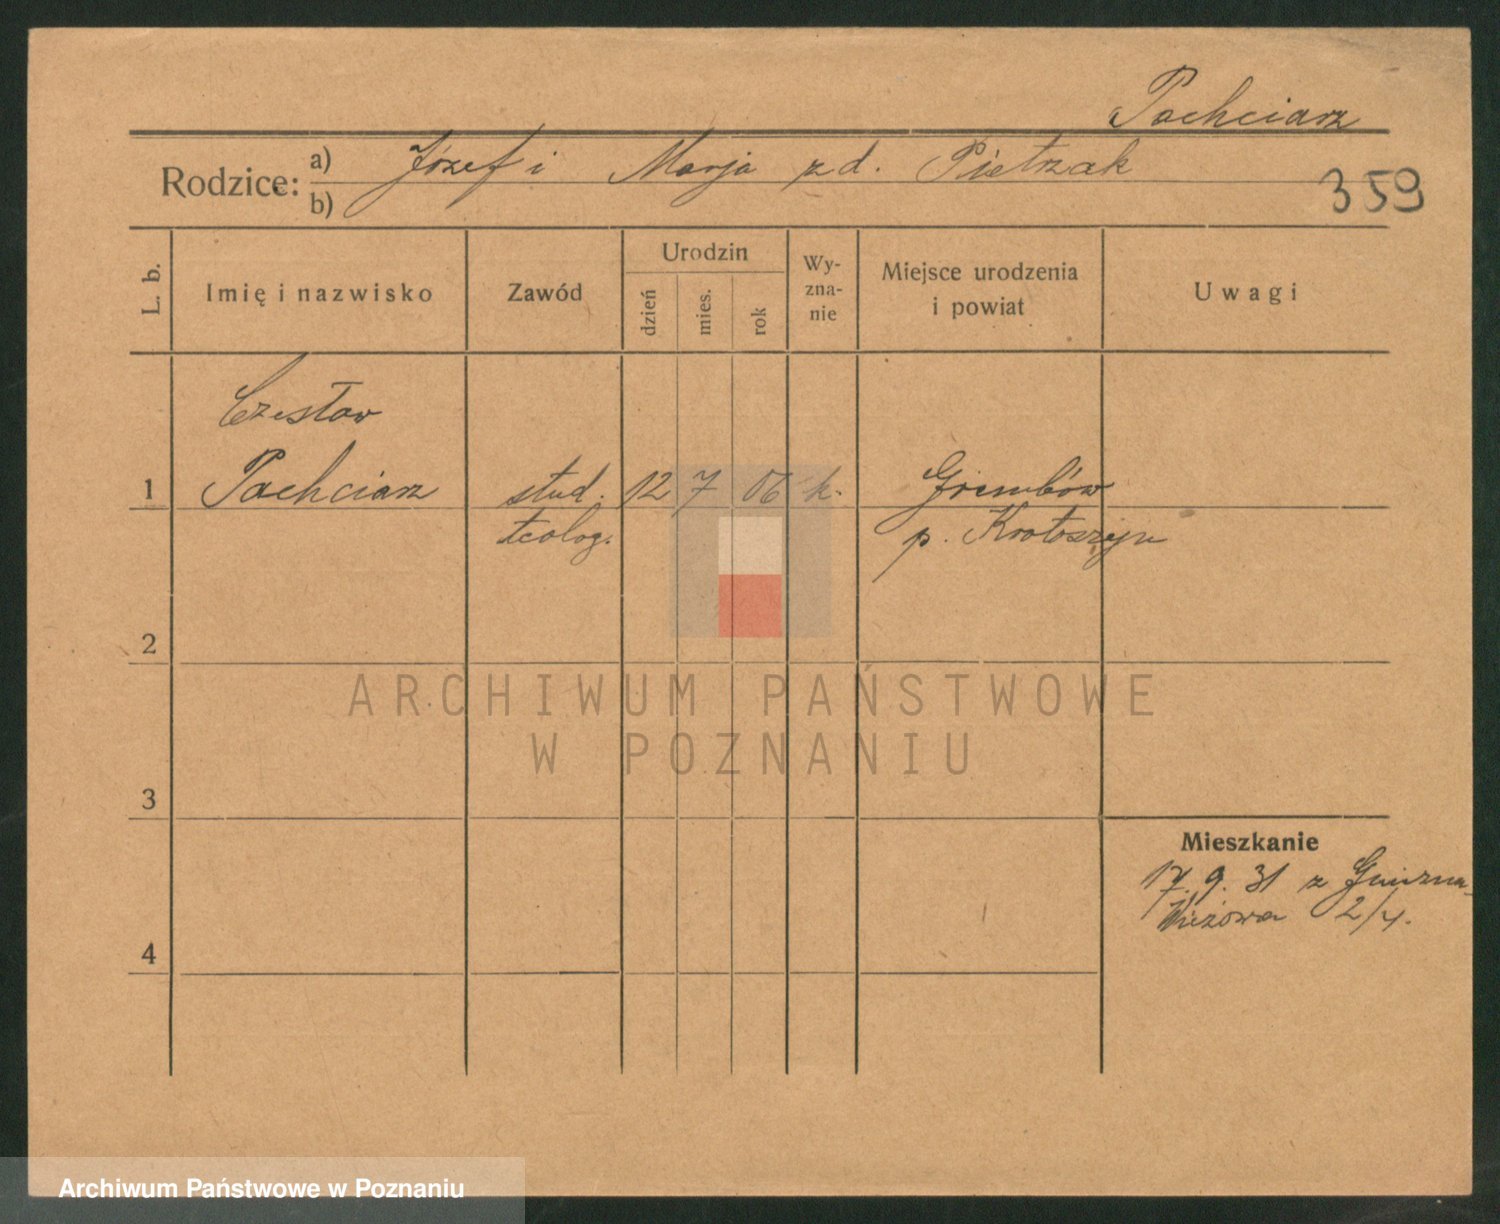 Pachciarz
Rodzice: a) Józef i Marja zd. Pietrzak
b)
359
L. b.
Imię i nazwisko
Zawód
Urodzin
dzień
mies.
rok
Wy-
zna-
nie
Miejsce urodzenia
i powiat
Uwagi
Czesław
1 Pachciarz stud. 12 7 06 k. Grembów
teolog. p. Krotoszyn
2
ARCHIWUM PAŃSTWOWE
W POZNANIU
3
Mieszkanie
17.9.31 z Gniezna
Wieżowa 2/4.
4
Archiwum Państwowe w Poznaniu